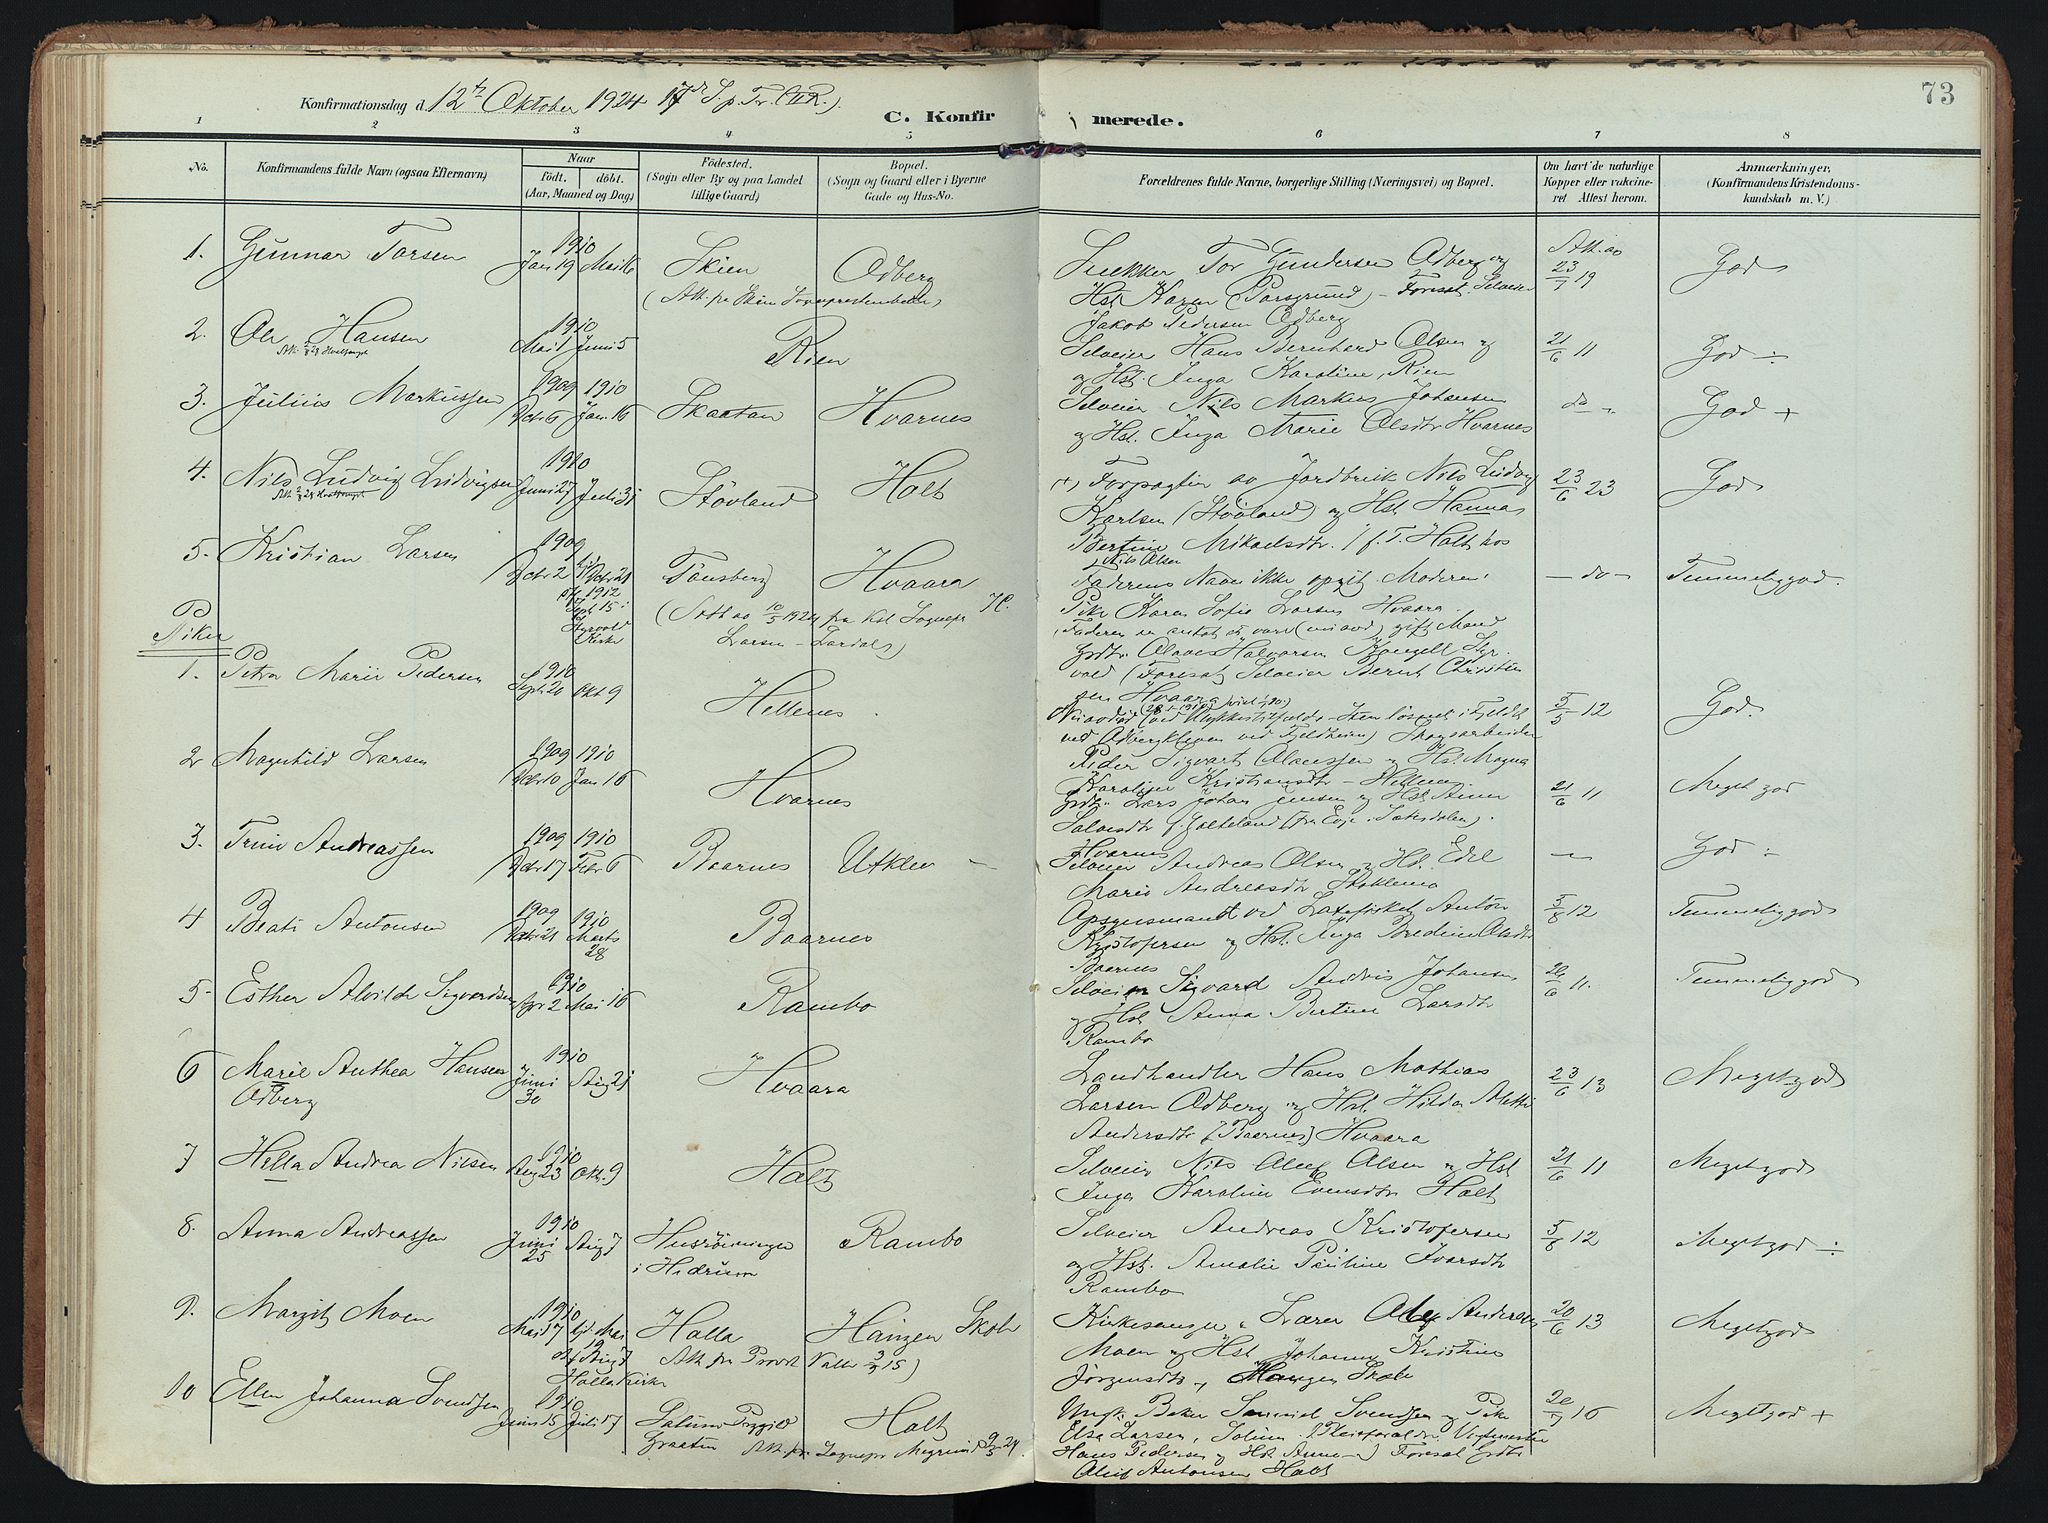 73
Konfirmationsdag d. 12te Oktober 1924 17de S. p. Tr. (II R.).
C. Konfirmerede.
1 2 3 4 5 6 7 8
No.
Konfirmandens fulde Navn (ogsaa Efternavn)
Naar
födt. döbt.
(Aar, Maaned og Dag)
Födested.
(Sogn eller By og paa Landet
tillige Gaard)
Bopæl.
(Sogn og Gaard eller i Byerne
Gade og Hus-No.
Forældrenes fulde Navne, borgerlige Stilling (Næringsvei) og Bopæl.
Om havt de naturlige
Kopper eller vakcine-
ret Attest herom.
Anmærkninger.
(Konfirmandens Kristendoms-
kundskab m. V.)
1. Gunnar Torsen 1910 Jan 19 Mai 16 Skien Odberg
(Att. fra Skien Sogneprestembede)
Snekker Tor Gundersen Odberg og
Hst. Karen (Porsgrund) - Foresat Selveier
Jakob Pedersen Odberg
Att. av 23/7 19 God
2. Ole Hansen 1910 Mai 1 Juni 5 Rien
Selveier Hans Bernhard Olsen og
og Hst. Inga Karoline, Rien
21/6 11 God ÷
3. Julius Markussen 1909 Dcbr 6 1910 Jan. 16 Skaatan Hvarnes
Selveier Nils Markus Johansen
og Hst. Inga Marie Olsdtr Hvarnes
do God +
4. Nils Ludvig Ludvigsen 1910 Juni 27 Juli 31 Stövland Holt
(+) Forpagter av Jordbruk Nils Ludvig
Karlsen (Stövland) og Hst Hanna
Bertine Mikaelsdtr. / f. T. Holt hos
Nils Olsen
23/6 23 God
5. Kristian Larsen 1909 Dcbr 2 Dcbr 21 Tönsberg Hvaara
1912 Sept 15 i Styrvold Kirke
(Att av 10/5 1924 fra kst. Sognepr
Larsen - Lardal)
Faderens Navn ikke opgit. Moderen:
Pike Karen Sofie Larsen Hvaara.
gift Mand
Gbdr. Olaves Halvorsen
(Foresat Selveier Bernt Christian
sen Hvaara
- do - Temmeliggod.
Piker
1. Petra Marie Pedersen 1910 Sept. 20 Okt 9 Hellenes
ved Odbergkleven ved Fjeldheim) Skogsarbeider
Peder Sigvart Olaussen og Hst. Magna
Karoline Kristiansdtr - Hellenes
5/5 12 God.
2 Magnhild Larsen 1909 Dcbr 10 1910 Jan 16 Hvarnes
Gbdr. Lars Johan Jensen og Hst Anne
Salvesdtr f. Galteland (fra Evje - Sætersdalen).
Hvarnes
21/6 11 Meget god
3. Trine Andreassen 1909 Dcbr 17 1910 Febr 6 Baarnes Utklev
Selveier Andreas Olsen og Hst. Edel
Marie Andreasdtr
God ÷
4 Beate Antonsen 1909 1910 Marts 28 Baarnes
Opsynsmand ved Laxefisket Anton
Kristofersen og Hst. Inga Bredine Olsdtr
Baarnes
5/8 12 Temmeliggod
5. Esther Alvilde Sigvardsen 1910 Apr 2 Mai 16 Rambo
Selveier Sigvard Andvis Johansen
og Hst Anna Bertine Larsdtr
Rambo
21/6 11. Temmeliggod
6 Marie Anthea Hansen 1910 Juni 30 Aug 21 Hvaara
Odberg
Landhandler Hans Mathias
Larsen Odberg og Hst. Hilda Alette
Andersdtr (Baarnes) Hvaara
23/6 13 Megetgod
7 Hella Andrea Nilsen 1910 Aug 23 Okt. 9 Holt
Selveier Nils Oluf Olsen og Hst
Inga Karoline Evensdtr Holt
21/6 11 Megetgod
8. Anna Andreassen 1910 Juni 25 Aug 7 Rambo
i Hedrum
Selveier Andreas Kristofersen
og Hst. Amalie Pauline Ivarsdtr
Rambo
5/8 12 Megetgod ÷
9. Margit Moen 1910 Mai 17 Holla Haugen Skole
Holla Kirke
Att. fra Provst
Kirkesanger & Lærer Oluf Andersen
Moen og Hst Johanne Kristine
Jörgensdtr, Haugen Skole
20/6 13 Megetgod
10 Ellen Johanna Svendsen 1910 Juni 15 Juli 17 Holt
Graaten Att. fra Sognepr
Ungk. Baker Samuel Svendsen og Pike
Elsa Larsen, Solum. (Pleieforældre
Hans Pedersen og Hst Anne) Foresat Gbdr
Oluf Antonsen Holt
20/7 16 Megetgod +